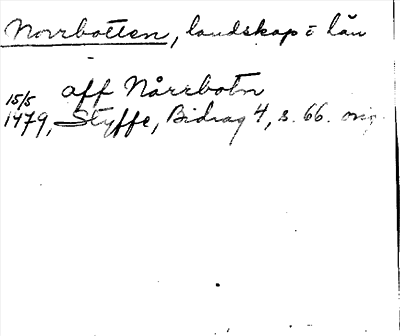 Norrbotten, landskap i län
aff Nårrbotn
15/5
1479, Styffe, Bidrag 4, s. 66. orig.